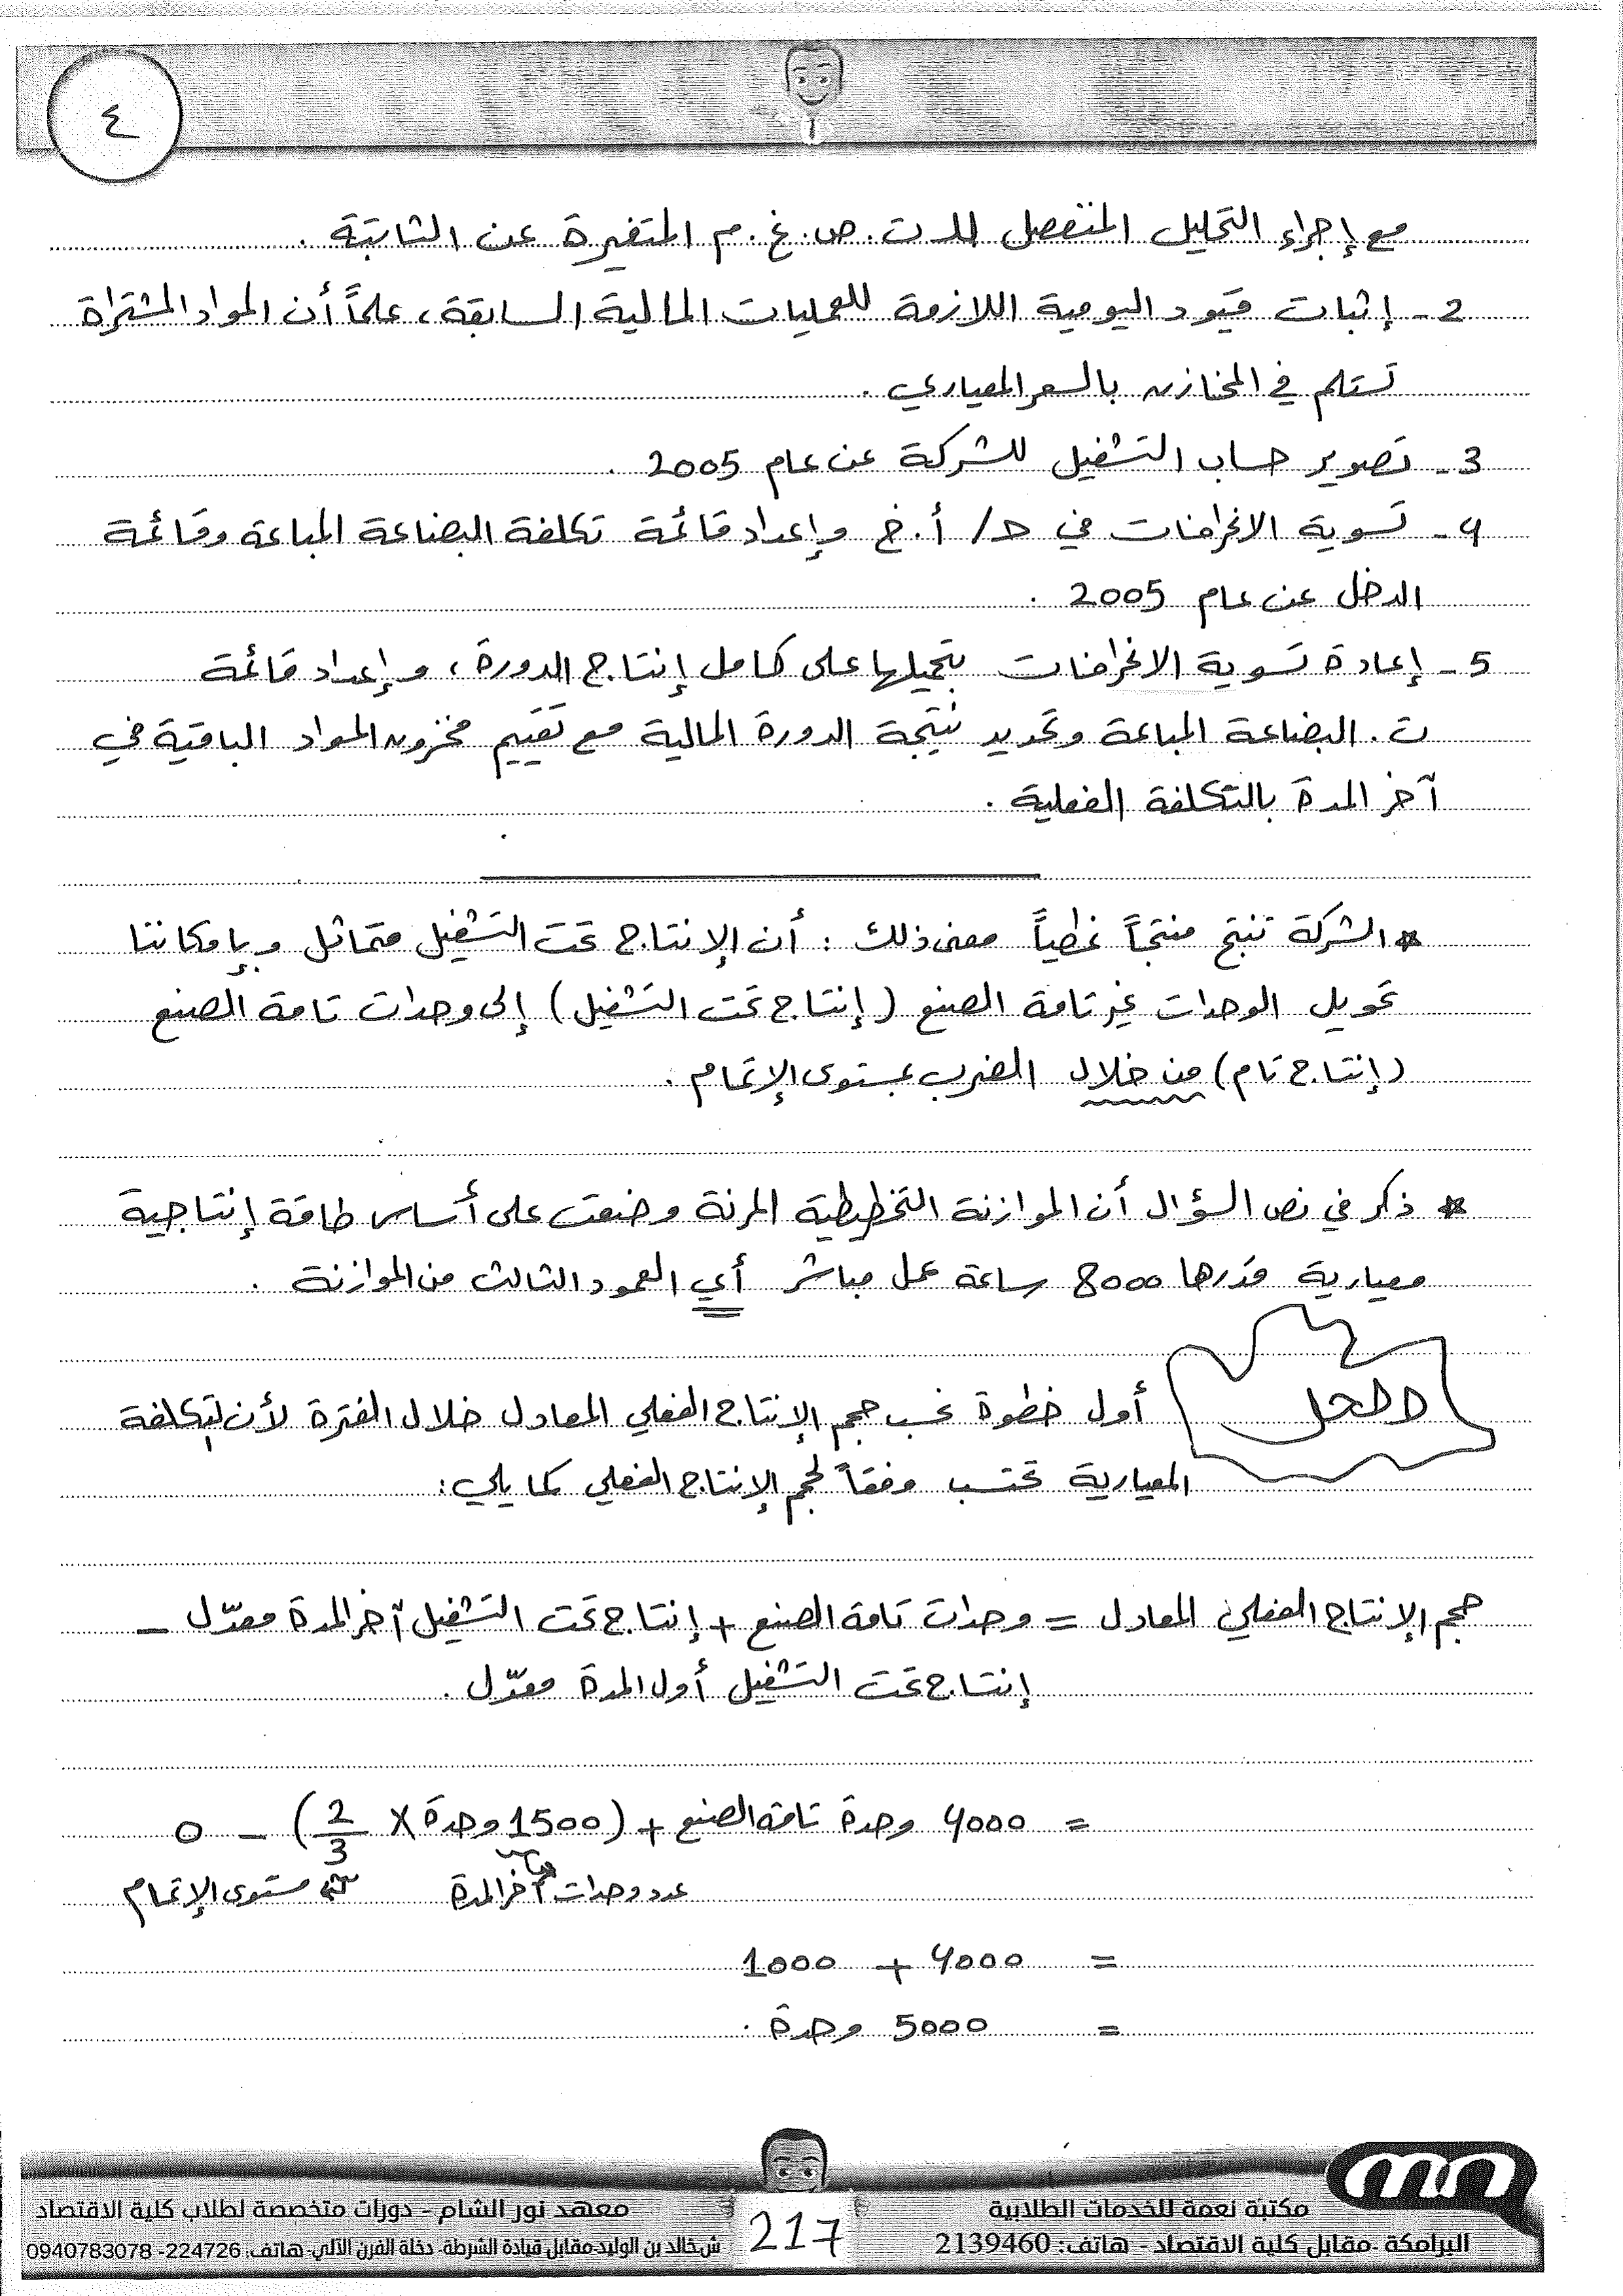 ٤
مع إجراء التحليل المنفصل للـ ت. ص. غ. م المتغيرة عن الثابتة .
2- إثبات قيود اليومية اللازمة للعمليات المالية السابقة، علماً أن المواد المشتراة
تستلم في المخازن بالسعر المعياري .
3- تصوير حساب التشغيل للشركة عن عام 2005 .
4- تسوية الانحرافات في حـ/ أ.خ وإعداد قائمة تكلفة البضاعة المباعة وقائمة
الدخل عن عام 2005 .
5- إعادة تسوية الانحرافات بتحميلها على كامل إنتاج الدورة، وإعداد قائمة
ت. البضاعة المباعة وتحديد نتيجة الدورة المالية مع تقييم مخزون المواد الباقية في
آخر المدة بالتكلفة الفعلية .
* الشركة تنتج منتجاً نمطياً معنى ذلك : أن الإنتاج تحت التشغيل متماثل وبإمكاننا
تحويل الوحدات غير تامة الصنع (إنتاج تحت التشغيل) إلى وحدات تامة الصنع
(إنتاج تام) من خلال الضرب بمستوى الإتمام .
* ذكر في نص السؤال أن الموازنة التخطيطية المرنة وضعت على أساس طاقة إنتاجية
معيارية قدرها 8000 ساعة عمل مباشر أي العمود الثالث من الموازنة .
الحل
أول خطوة نحسب حجم الإنتاج الفعلي المعادل خلال الفترة لأن التكلفة
المعيارية تحتسب وفقاً لحجم الإنتاج الفعلي كما يلي:
حجم الإنتاج الفعلي المعادل = وحدات تامة الصنع + إنتاج تحت التشغيل آخر المدة معدّل -
إنتاج تحت التشغيل أول المدة معدّل .
= 4000 وحدة تامة الصنع + (1500 وحدة × 2/3) - 0
عدد وحدات آخر المدة مستوى الإتمام
= 4000 + 1000
= 5000 وحدة .
مكتبة نعمة للخدمات الطلابية
البرامكة - مقابل كلية الاقتصاد - هاتف: 2139460
217
معهد نور الشام - دورات متخصصة لطلاب كلية الاقتصاد
ش خالد بن الوليد - مقابل قيادة الشرطة - دخلة الفرن الآلي - هاتف: 224726 - 0940783078